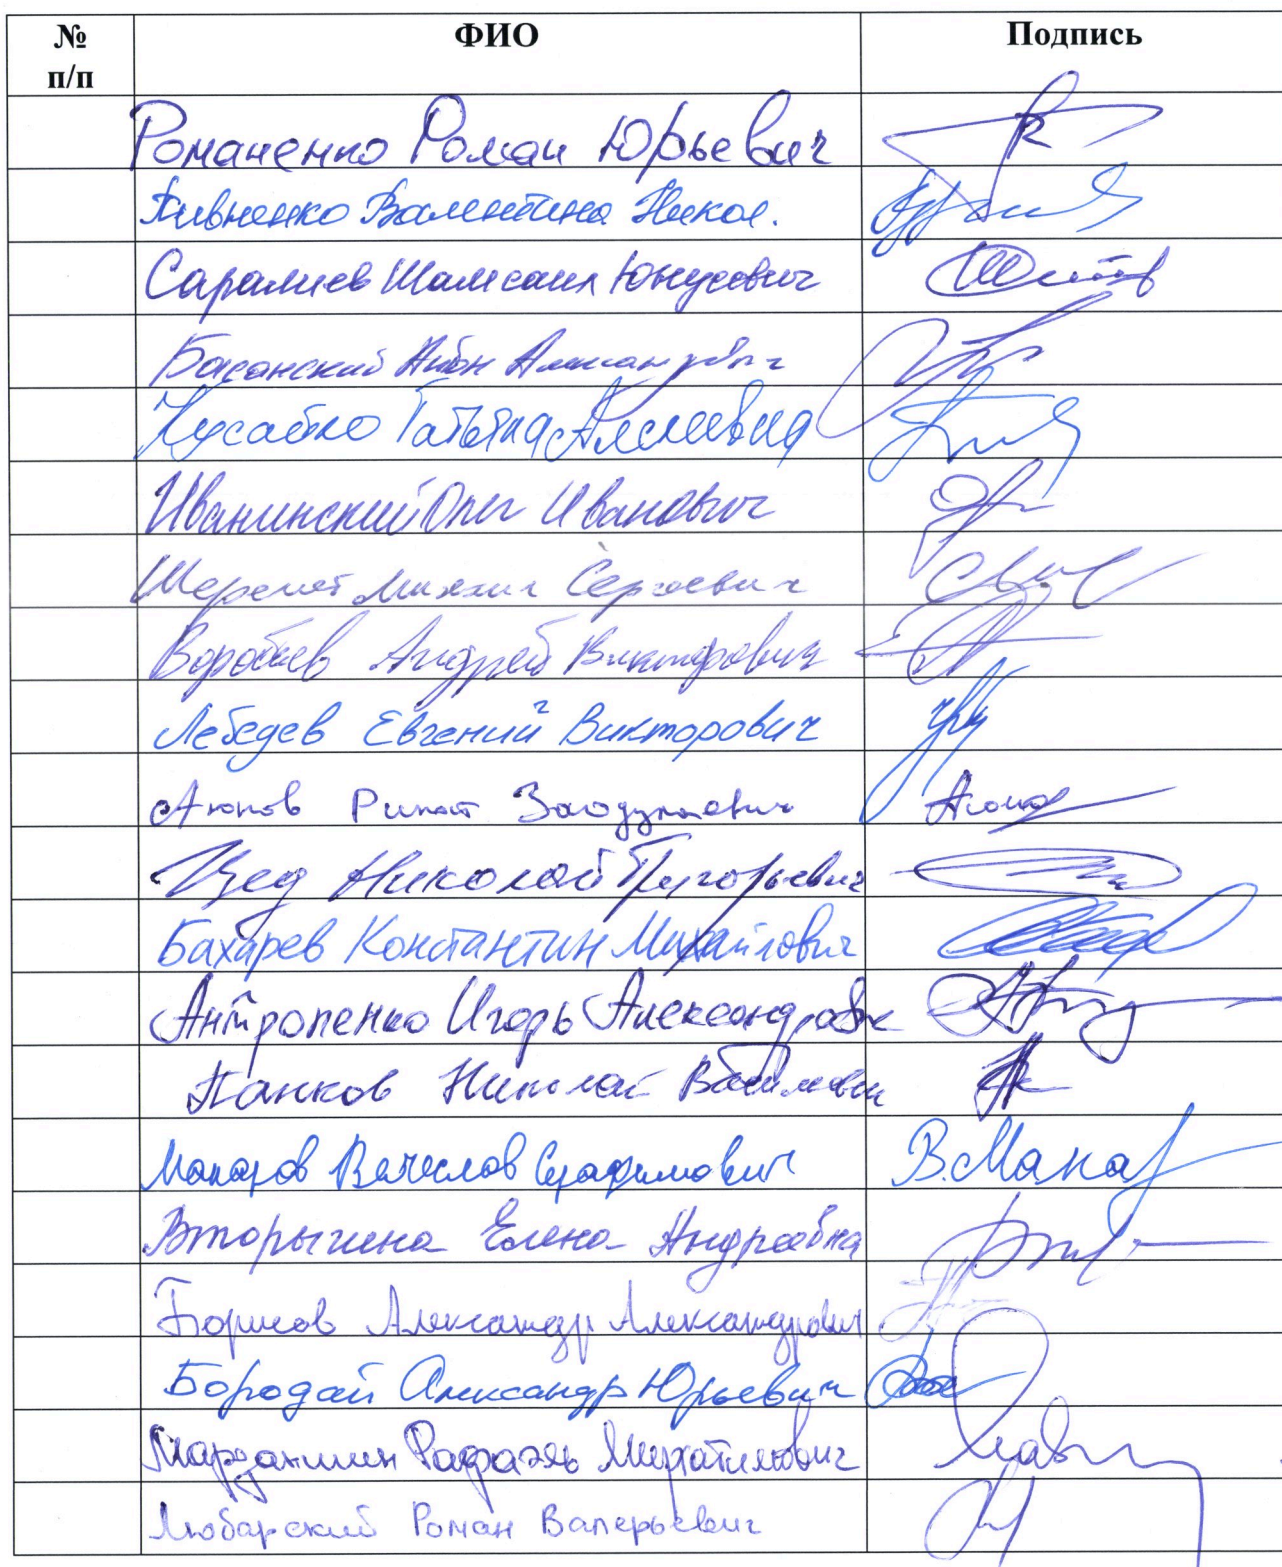 № п/п ФИО Подпись
Романенко Роман Юрьевич
Пивненко Валентина Никол.
Саралиев Шамсаил Юнусович
Басанский Антон Александрович
Кусайко Татьяна Алексеевна
Иванинский Олег Иванович
Шеремет Михаил Сергеевич
Воробьев Андрей Викторович
Лебедев Евгений Викторович
Аюпов Ринат Аюпов
Цед Николай Григорьевич
Бахарев Константин Михайлович
Антропенко Игорь Александрович
Панков Николай Васильевич
Макаров Вячеслав Серафимович В.Макар
Вторыгина Елена Андреевна
Борисов Александр Александрович
Бородай Александр Юрьевич
Марданшин Рафаэль Мирхатимович
Любарский Роман Валерьевич